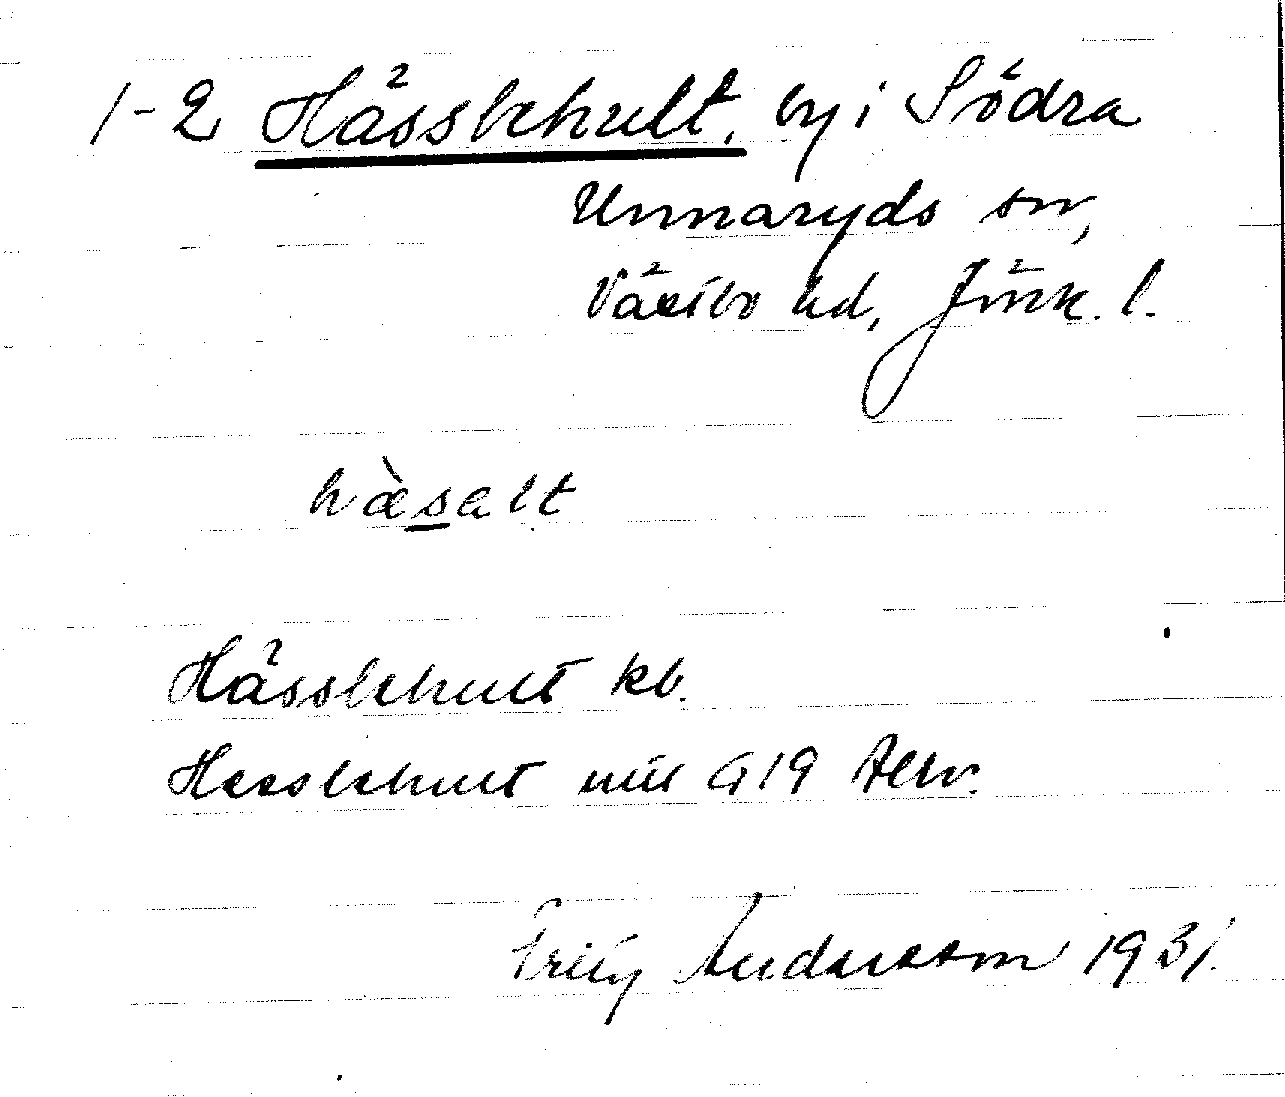 1-2 Hässlehult, by i Södra
Unnaryds sn,
Västbo hd, Jönk. l.
hàsalt
Hässlehult kb.
Hesslehult mil G 19
Fritz Andersson 1931.